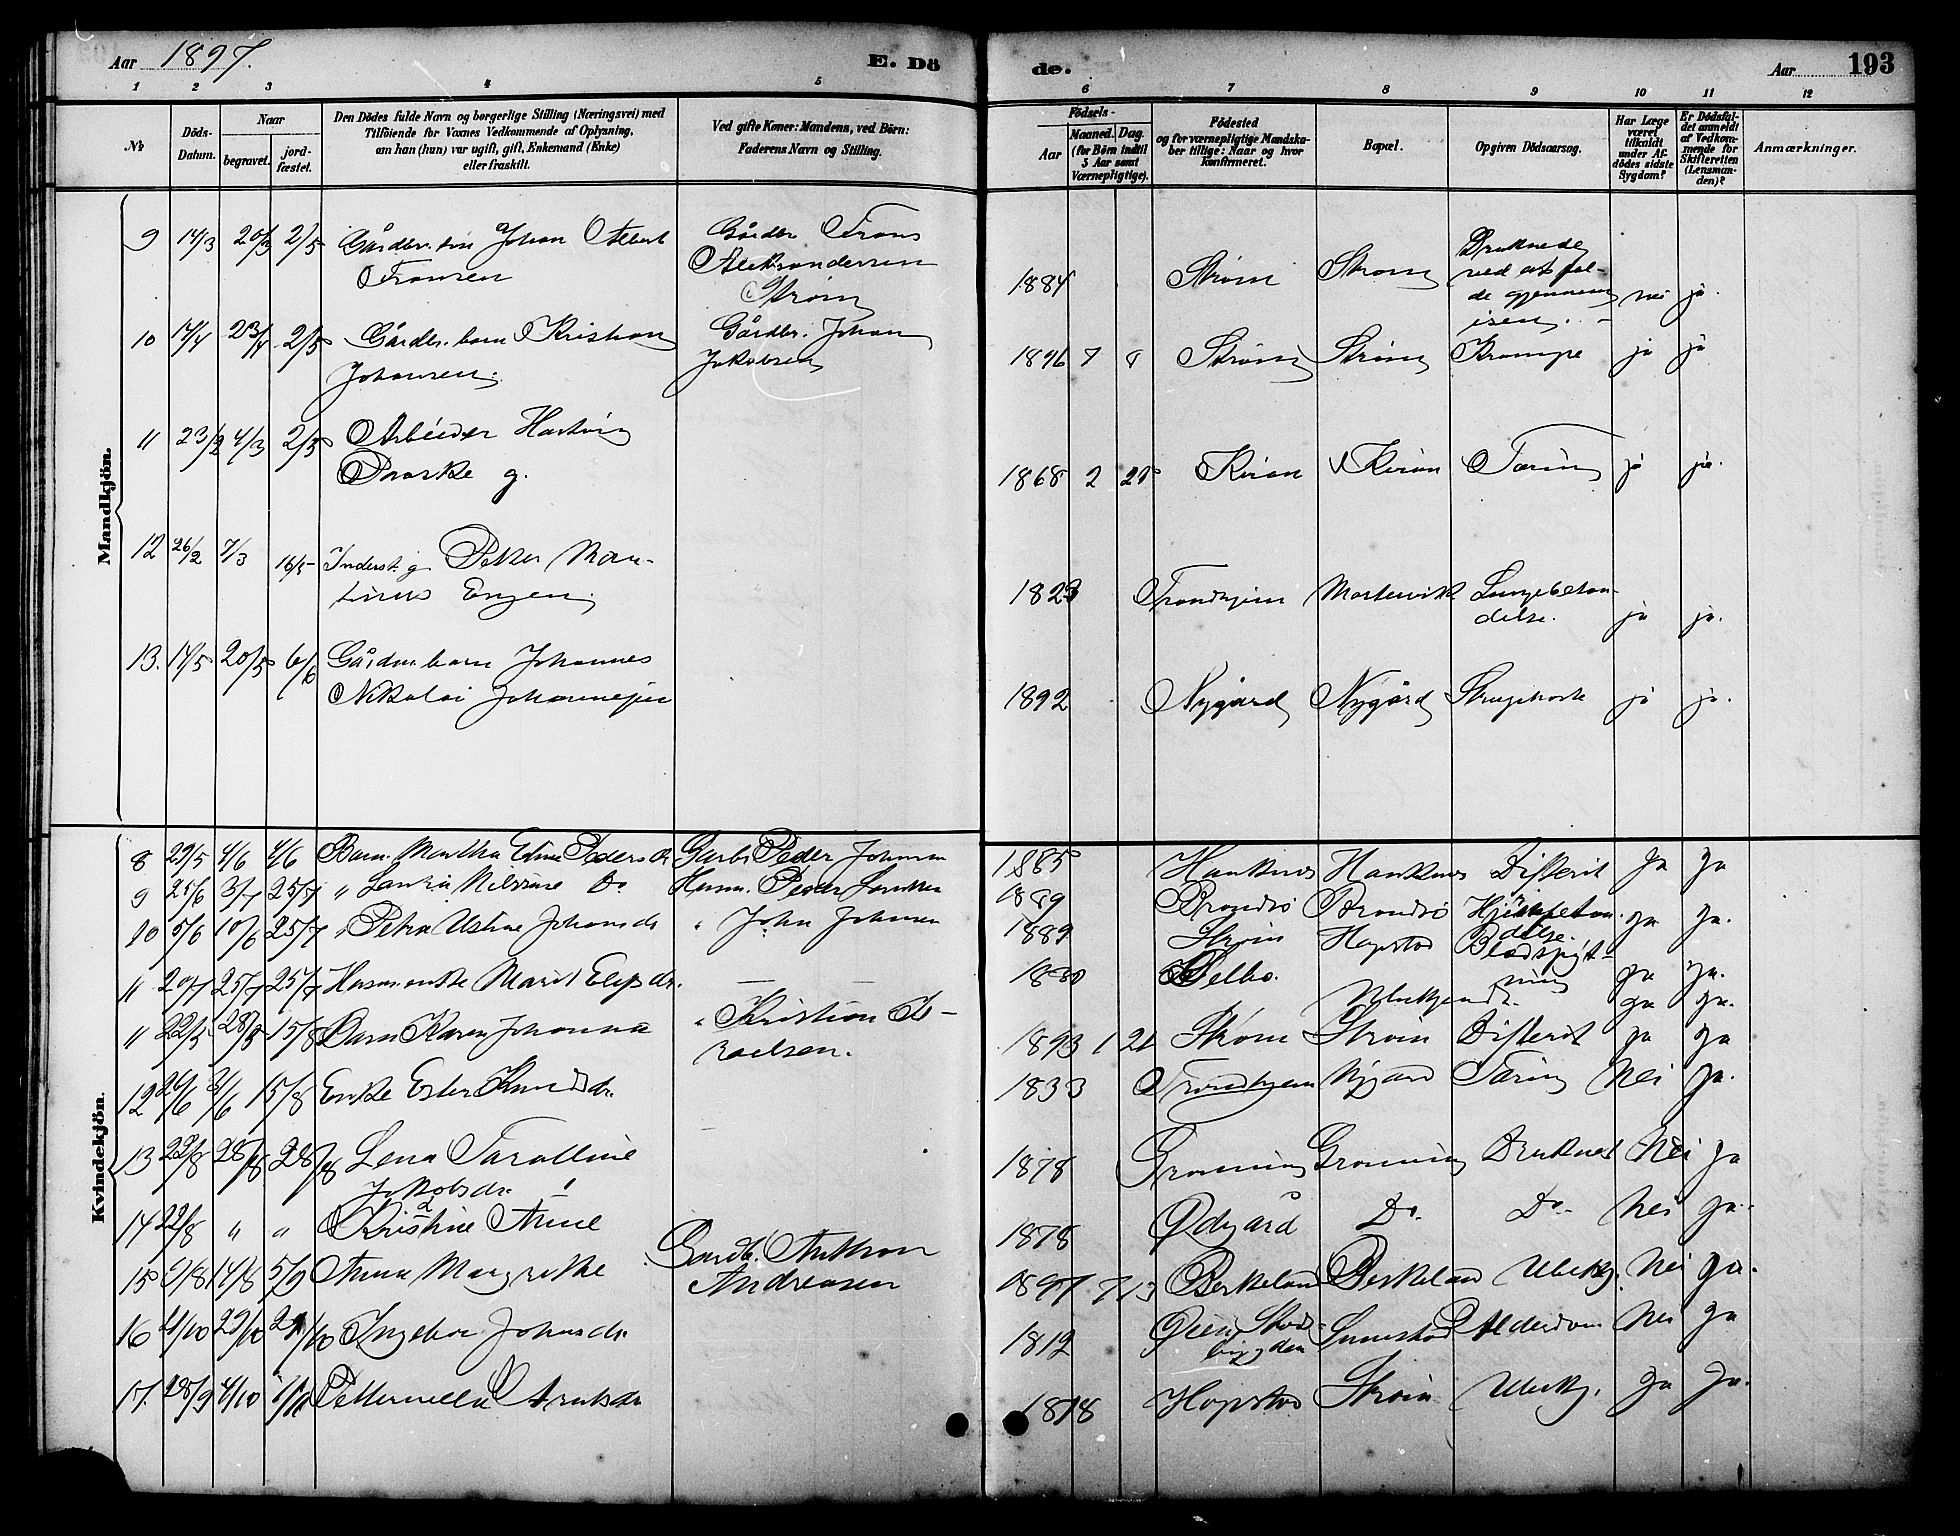 Aar 1897.
E. Dö
de.
Aar
193
1 2 3 4 5 6 7 8 9 10 11 12
№
Döds-
Datum.
Naar
begravet.
jord-
fæstet.
Den Dödes fulde Navn og borgerlige Stilling (Næringsvei) med
Tilföiende for Voxnes Vedkommende af Oplysning,
om han (hun) var ugift, gift, Enkemand (Enke)
eller fraskilt.
Ved gifte Koner: Mandens, ved Börn:
Faderens Navn og Stilling.
Födsels-
Aar
Maaned. Dag.
(for Börn indtil
5 Aar samt
Værnepligtige).
Födested
og for værnepligtige Mandska-
ber tillige: Naar og hvor
konfirmeret.
Bopæl.
Opgiven Dödsaarsag.
Har Læge
været
tilkaldt
under Af-
dödes sidste
Sygdom?
Er Dödsfal-
det anmeldt
af Vedkom-
mende for
Skifteretten
(Lensman-
den)?
Anmærkninger.
Mandkjön.
9 14/3 20/3 2/5 Gårdbr. søn Johan Albert
Fransen
Gårdbr. Frans
Aleksandersen
Strøm
1884 Strøm Strøm Druknede
ved at fal-
de gjennem
isen. nei ja.
10 14/4 23/4 2/5 Gårdbr. barn Kristian
Johansen.
Gårdbr. Johan
Jakobsen
1896 7 8 Strøm Strøm Krampe ja ja
11 23/2 4/3 2/5 Arbeider Hartvig
g.
1868 2 25 Kiran Kiran Tæring ja ja.
12 26/2 7/3 16/5 Inderst. g. Petter Mar-
tinus Engen
1823 Trondhjem Mortenvik Lungebetæn-
delse. ja ja.
13. 14/5 20/5 6/6 Gårdm. barn Johannes
Nikolai Johannesen
1892 Nygård Nygård Strugehoste ja ja.
Kvindekjön.
8 29/5 4/6 4/6 Barn Martha Peders dr Garbr Peder Johnsen
1885 Difterit Ja Ja
9 25/6 3/7 25/7 " Do Husm. Peder
1889 Brandsø Brandsø Hjernebetæn-
delse. ja ja.
10 5/6 10/6 25/7 " Petra Johans dr " John Johnsen
1889 Strøm Hopstad Blodspyt-
ning ja ja.
11 20/7 25/7 25/7 Husm enke Marit dr. —
Selbo. ja ja.
11 22/5 28/5 15/8 Barn Karen Johanna " Kristian Is-
raelsen.
1893 1 21 Strøm Strøm Difterit ja ja
12 26/6 15/8 Enke Ester Knuds dr.
1833 Trondhjem Nygård Tæring Nei ja.
13 22/8 28/8 28/8 Lena
Jakobs dr.
1878 Grønning Grønning Druknet Nei ja
14 22/8 " " Kristine Anne
1878 Ødegård Do. Do. Nei ja.
15 9/8 14/8 5/9 Anna Margrethe Gårdb. Anthon
Andreasen
1897 7 13 Berkeland Berkeland Ubekj. Nei ja.
16 21/10 29/10 29/10 Ingebor Johns dr.
1812 Stads-
bygden Alderdom Nei ja
17. 28/9 4/10 Petternella
1878 Hopstad Strøm Ubekj. ja ja.